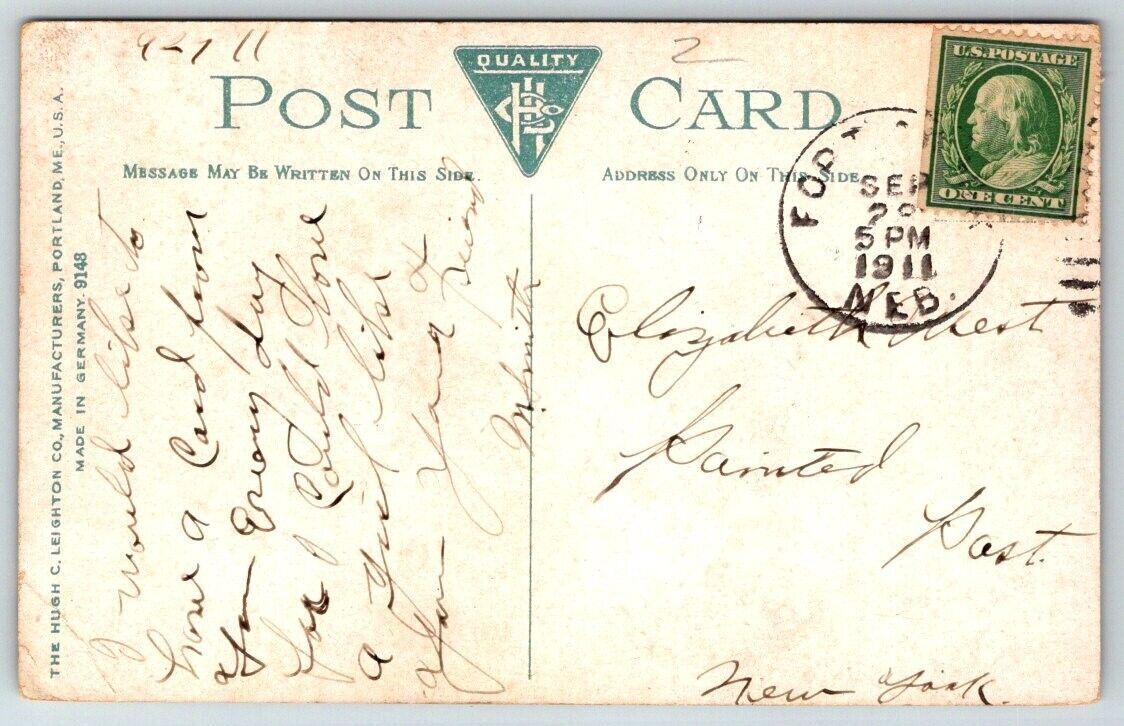 9-29 11
2
QUALITY
POST CARD
MESSAGE MAY BE WRITTEN ON THIS SIDE.
ADDRESS ONLY ON THIS SIDE
U.S. POSTAGE
ONE CENT
FORT
SEP
29
5 PM
1911
NEB.
THE HUGH C. LEIGHTON CO., MANUFACTURERS, PORTLAND, ME., U.S.A.
MADE IN GERMANY. 9148
I would like to
have a Card from
you Every day
for I Could love
a Girl like
you
your Friend
M. Smith
Elizabeth West
Painted
Post.
New York.